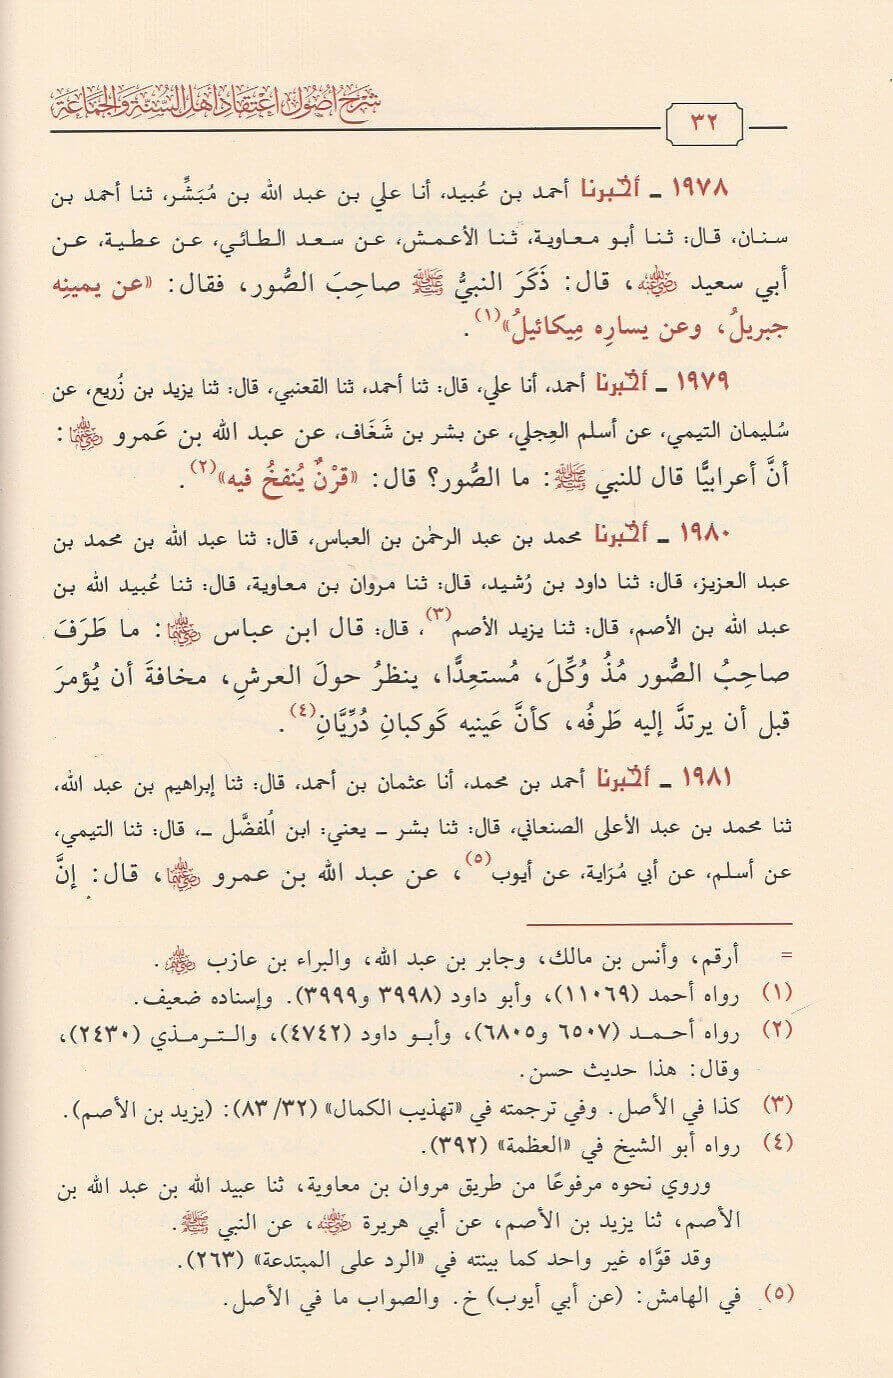 شرح أصول اعتقاد أهل السنة والجماعة
٣٢
١٩٧٨ ـ أخبرنا أحمد بن عُبيد، أنا علي بن عبد الله بن مُبَشِّر، ثنا أحمد بن
سنان، قال: ثنا أبو معاوية، ثنا الأعمش، عن سعد الطائي، عن عطية، عن
أبي سعيد رضي الله عنه، قال: ذَكَرَ النبيُّ ﷺ صاحِبَ الصُّور، فقال: «عن يمينِه
جبريلُ، وعن يسارِه مِيكائيلُ»(١).
١٩٧٩ ـ أخبرنا أحمد، أنا علي، قال: ثنا أحمد، ثنا القعنبي، قال: ثنا يزيد بن زُريع، عن
سُليمان التيمي، عن أسلم العِجلي، عن بشر بن شَغَاف، عن عبد الله بن عَمرو رضي الله عنهما:
أنَّ أعرابيًّا قال للنبي ﷺ: ما الصُّور؟ قال: «قرْنٌ يُنفخُ فيه»(٢).
١٩٨٠ ـ أخبرنا محمد بن عبد الرحمٰن بن العباس، قال: ثنا عبد الله بن محمد بن
عبد العزيز، قال: ثنا داود بن رُشيد، قال: ثنا مروان بن معاوية، قال: ثنا عُبيد الله بن
عبد الله بن الأصم، قال: ثنا يزيد الأصم(٣)، قال: قال ابن عباس رضي الله عنهما: ما طَرَفَ
صاحِبُ الصُّور مُذُ وُكِّلَ، مُستعِدًّا، ينظرُ حولَ العرشِ، مخافةَ أن يُؤمرَ
قبل أن يرتدَّ إليه طَرفُه، كأنَّ عَينيه كَوكبانِ دُرِّيَّانِ(٤).
١٩٨١ ـ أخبرنا أحمد بن محمد، أنا عثمان بن أحمد، قال: ثنا إبراهيم بن عبد الله،
ثنا محمد بن عبد الأعلى الصنعاني، قال: ثنا بشر ـ يعني: ابن المُفضَّل ـ، قال: ثنا التيمي،
عن أسلم، عن أبي مُرَاية، عن أيوب(٥)، عن عبد الله بن عمرو رضي الله عنهما، قال: إنَّ
= أرقم، وأنس بن مالك، وجابر بن عبد الله، والبراء بن عازب رضي الله عنهم.
(١) رواه أحمد (١١٠٦٩)، وأبو داود (٣٩٩٨ و٣٩٩٩). وإسناده ضعيف.
(٢) رواه أحمد (٦٥٠٧ و٦٨٠٥)، وأبو داود (٤٧٤٢)، والترمذي (٢٤٣٠)،
وقال: هذا حديث حسن.
(٣) كذا في الأصل. وفي ترجمته في «تهذيب الكمال» (٣٢/ ٨٣): (يزيد بن الأصم).
(٤) رواه أبو الشيخ في «العظمة» (٣٩٢).
وروي نحوه مرفوعًا من طريق مروان بن معاوية، ثنا عبيد الله بن عبد الله بن
الأصم، ثنا يزيد بن الأصم، عن أبي هريرة رضي الله عنه، عن النبي ﷺ.
وقد قوَّاه غير واحد كما بينته في «الرد على المبتدعة» (٢٦٣).
(٥) في الهامش: (عن أبي أيوب) خ. والصواب ما في الأصل.